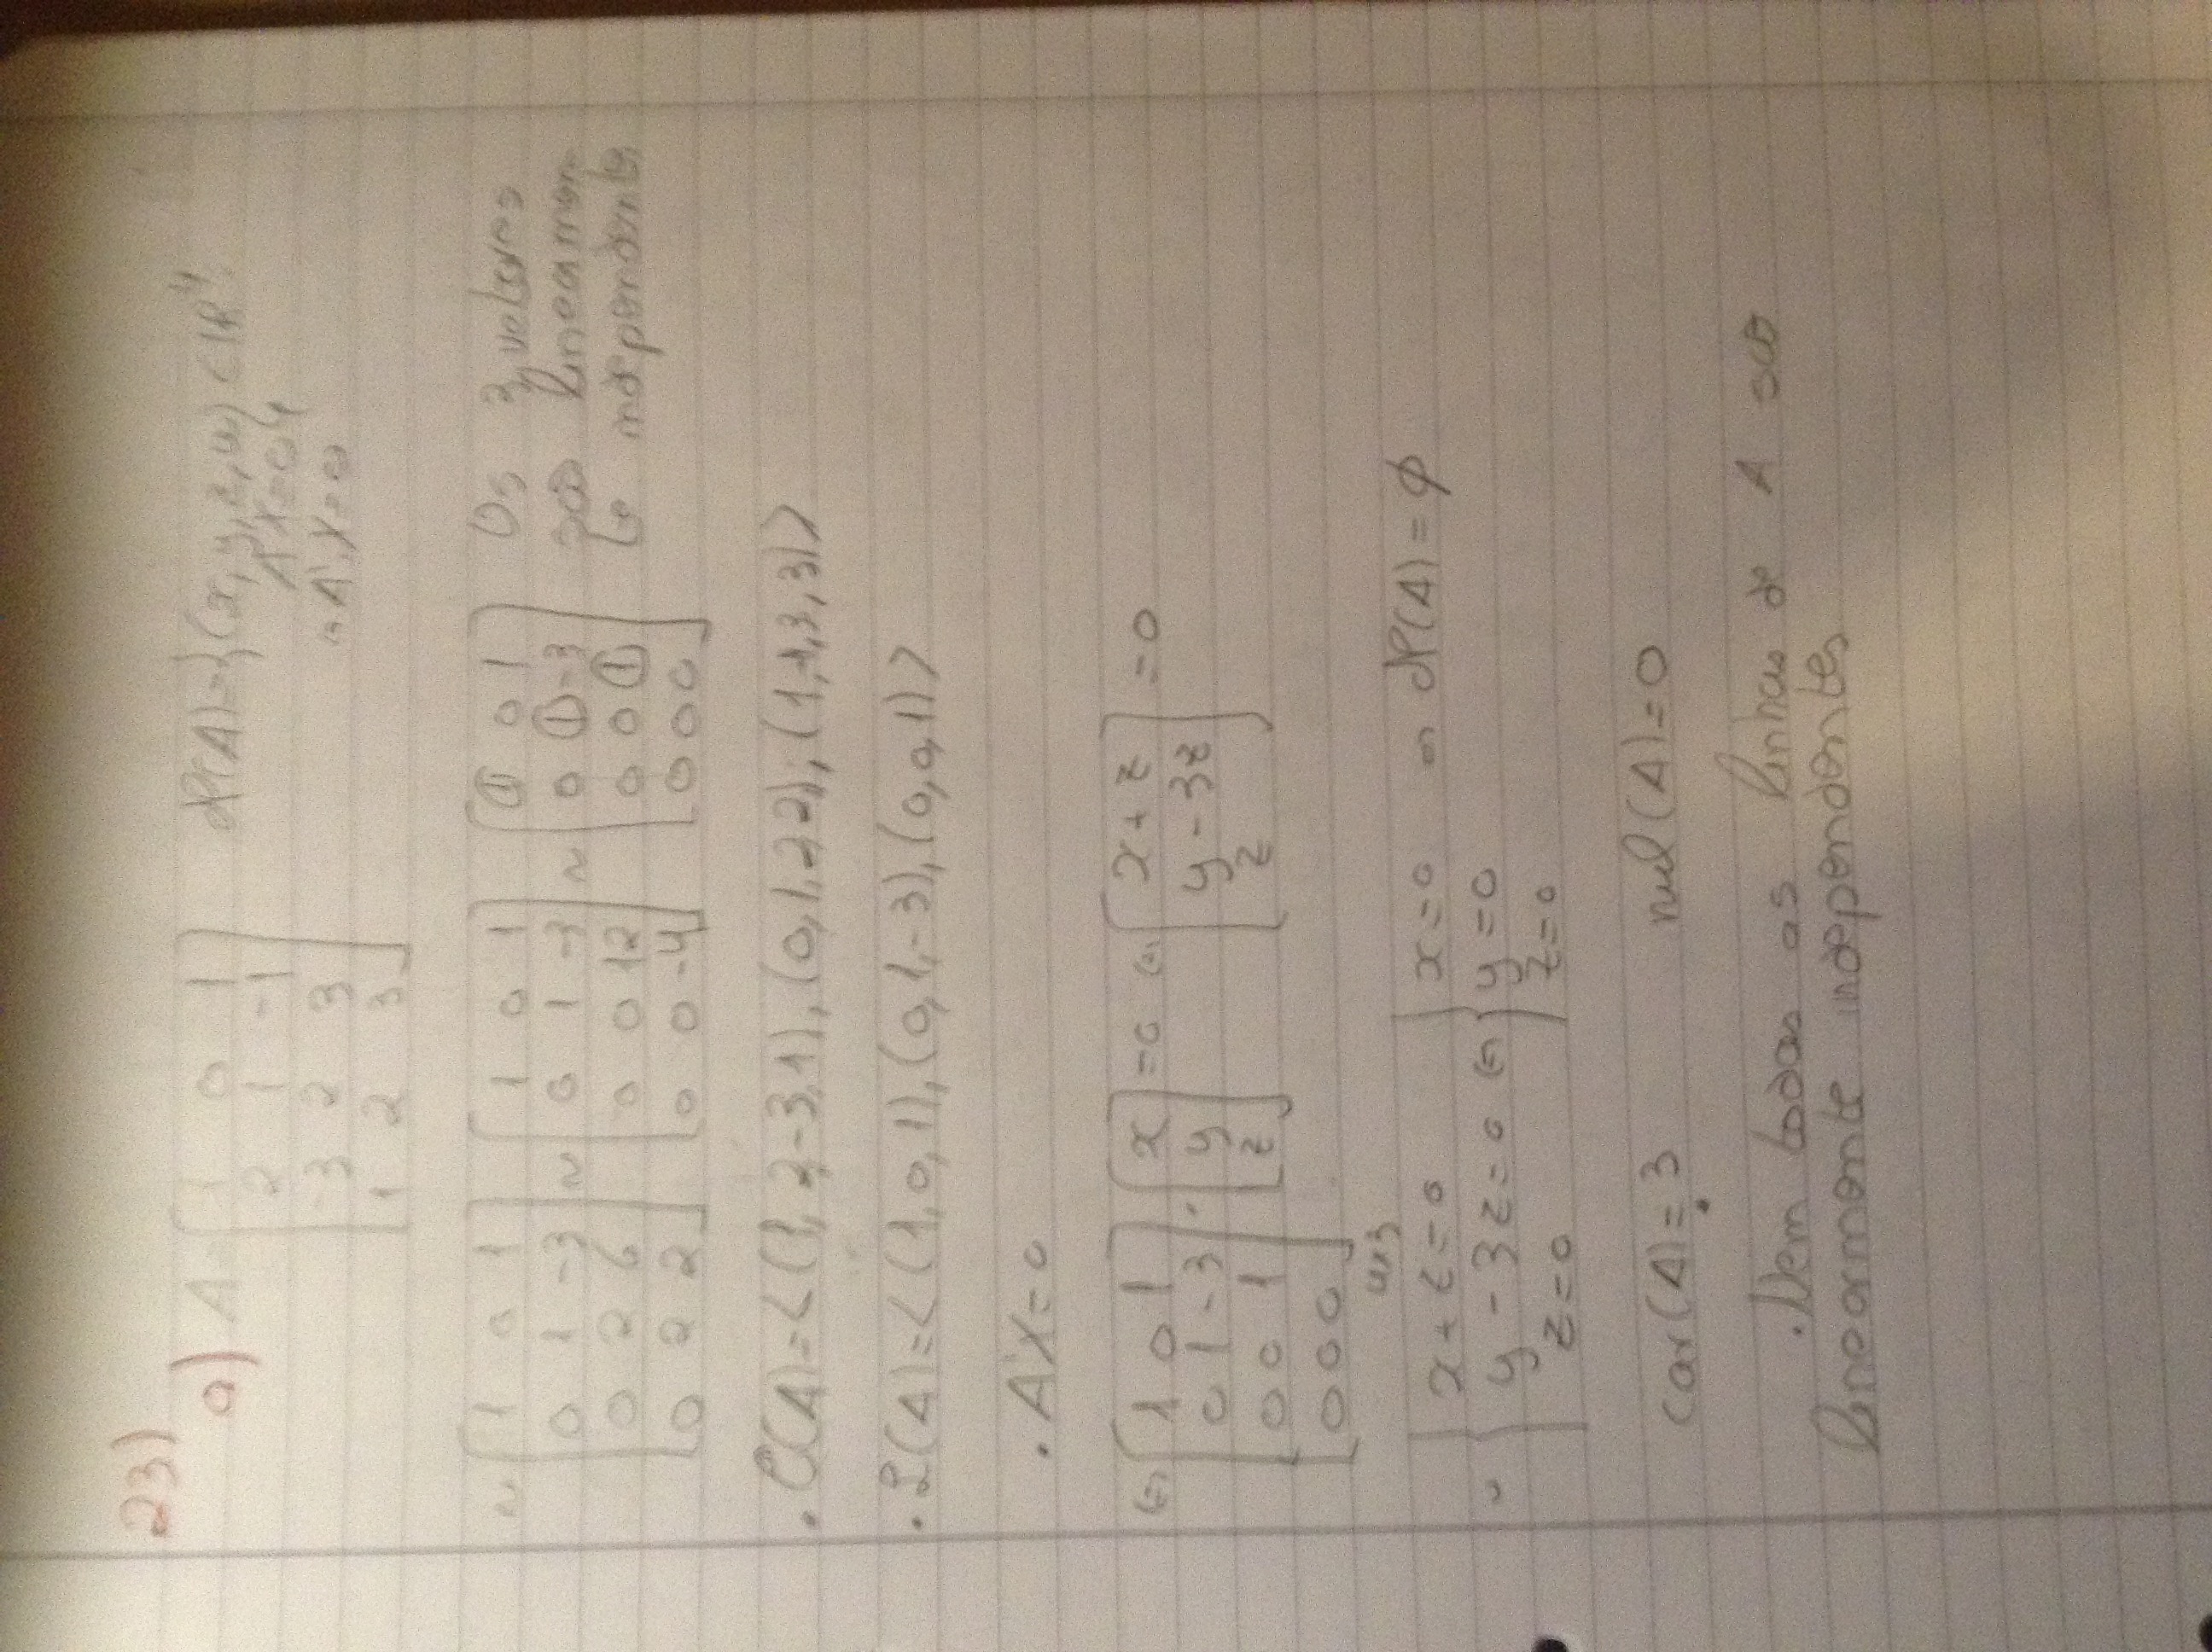 23)
a) A = [1 0 1
2 1 -1
-3 2 3
1 2 3]
N(A)={(x, y, z, w) ∈ IR⁴:
A X=0}
⇔ A'X=0
~ [1 0 1
0 1 -3
0 2 6
0 2 2] ~ [1 0 1
0 1 -3
0 0 12
0 0 -4] ~ [① 0 1
0 ① -3
0 0 ①
0 0 0]
Os 3 vetores
são lineamen
te independentes
. C(A)=< (1, 2, -3, 1), (0, 1, 2, 2), (1, -1, 3, 3) >
. L(A)=< (1, 0, 1), (0, 1, -3), (0, 0, 1) >
. A'X = 0
⇔ [1 0 1
0 1 -3
0 0 1
0 0 0] 4x3 · [x
y
z] = 0 ⇔ [x + z
y - 3z
z] = 0
{ x + z = 0
y - 3z = 0
z = 0 ⇔ { x = 0
y = 0
z = 0
N(A) = ϕ
car(A) = 3 nul(A) = 0
. Nem todas as linhas de A são
linearmente independentes